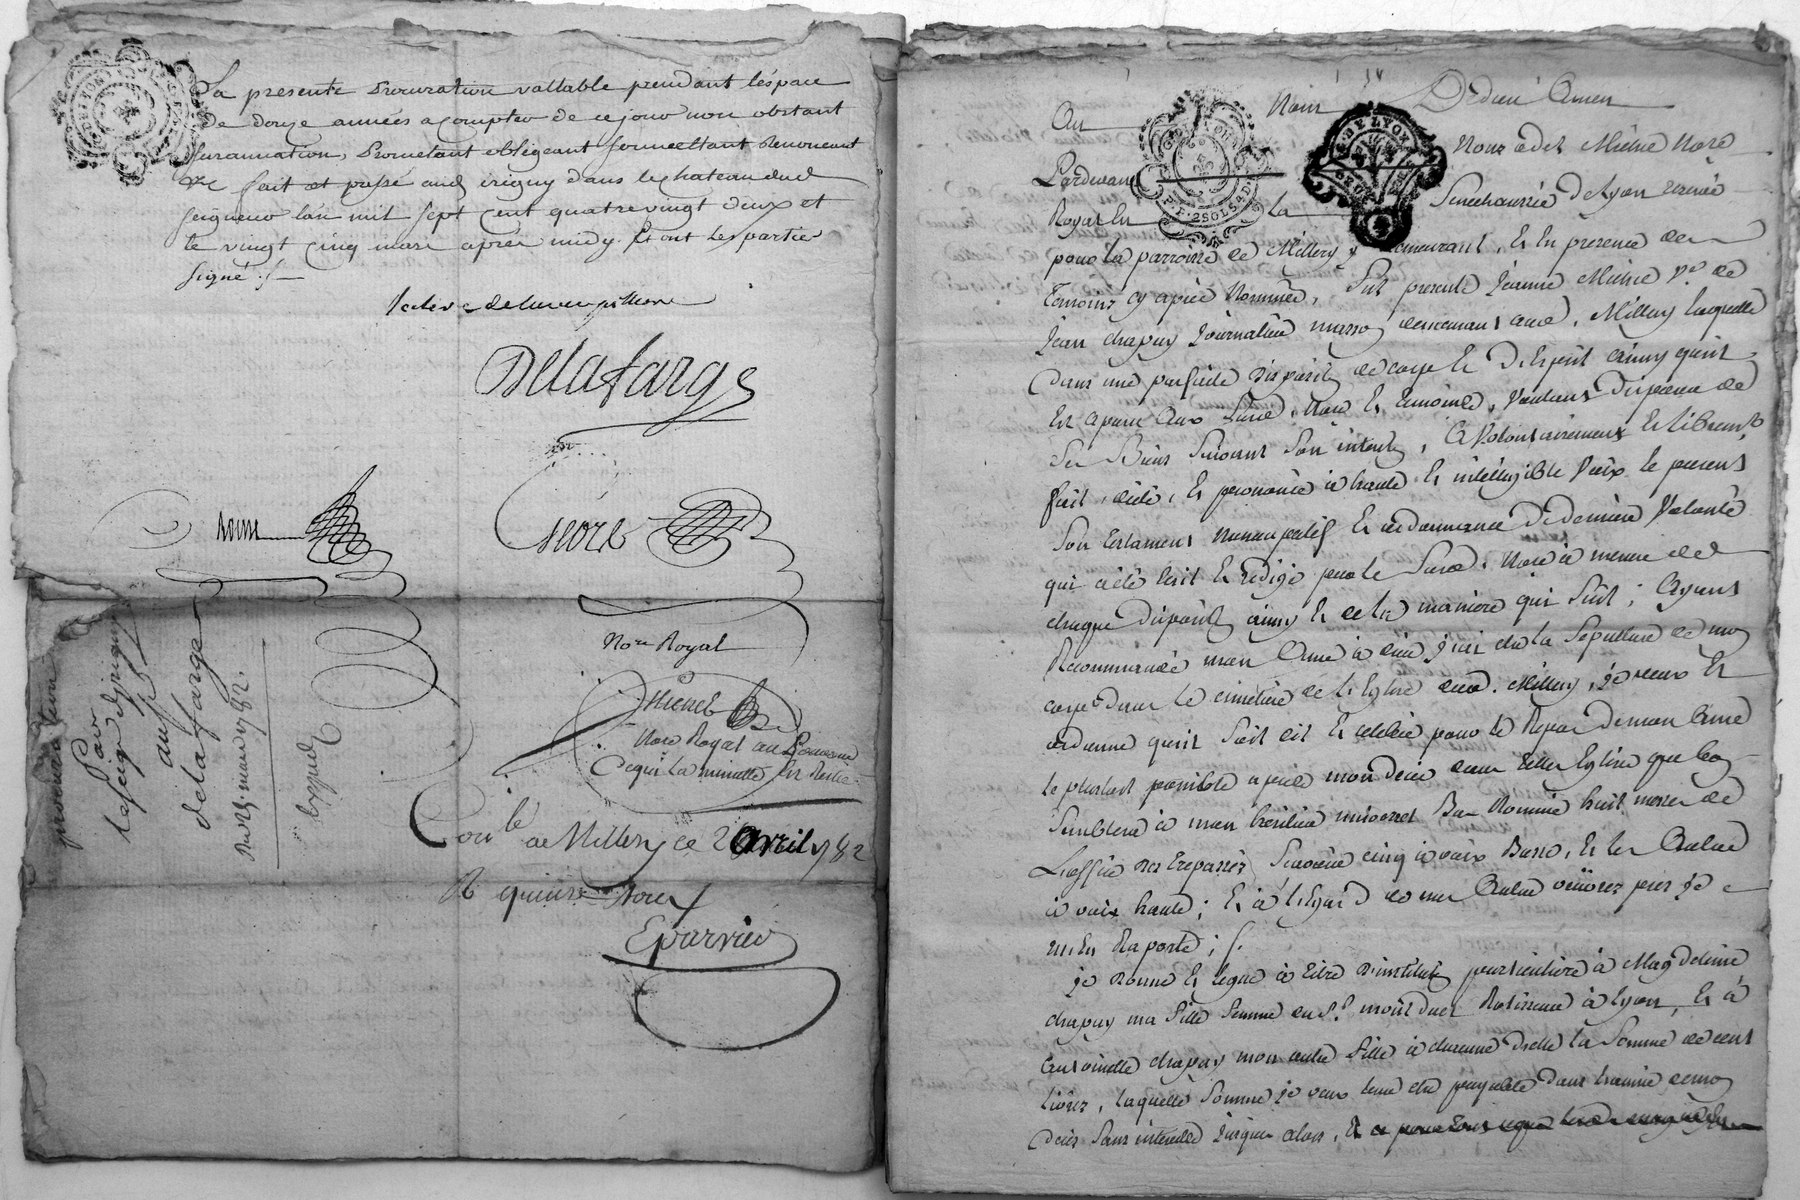 La presente procuration vallable pendant lespace
de douze années a compter de ce jour non obstant
surannation, promettant obligeant soumettant renoncant
&c fait et passé aud irigny dans le chateau dud
seigneur lan mil sept cent quatre vingt deux et
le vingt cinq mars apres midy. Et ont les parties
signé ./.
Delafarge
more
Nore Royal
Michel
Nore Royal au
Ce qui la minutte
Conle de Millery ce 2 Avril 1782
R quinze sous
Eparvier
procuration
Par
le seigr dirigny
au sr
delafarge
Du 25. mars 1782.
Expedié
G. DE LYON
P. P. 2 SOLS 4 D.
G. DE LYON
Au Nom De dieu Amen
Pardevant Nous Michel Nore
Royal En la Senechaussée de Lyon
pour la parroisse de Millery y demeurant, Et En presence des
Temoins cy apres Nommés, fut presente Jeanne Ve de
Jean chapuy Journalier demeurant aud. Millery laquelle
Dans une parfaite disposition de corps Et D'Esprit ainsy qu'il
Est aparu aux susd. Nore Et temoins, Voulant Disposer de
Ses Biens Suivant Son intention, a Volontairement Et librement
fait, dicté, Et prononcé à haute Et intelligible Voix le present
Son testament nuncupatif Et ordonnance De derniere Volonté
qui a été Ecrit Et redigé par le Susd. Nore à mesure de
chaque disposition ainsy Et de la maniere qui Suit ; Ayant
Recommandé mon Ame à dieu, J'Eli de la Sepulture de mon
corps dans le cimetiere de l'Eglise dud. Millery, je veux Et
ordonne qu'il Soit dit Et celebré pour le Repos De mon Ame
le plustost possible après mon decès dans telles Eglise que bon
Semblera à mon heritier universel Bas Nommé huit messes de
L'office des trepassés Sçavoir cinq à voix Basse, Et les Autres
à voix haute ; Et à l'Egard de mes Autres œuvres pies je
m'En Raporte ; /.
je Donne Et legue à titre D'institution particuliere à Magdeleine
chapuy ma fille femme du Sr. à Lyon, Et à
Antoinette chapuy mon autre fille à chacune d'elle la Somme de cent
livres, laquelle Somme je veux Etre payable dans l'année de mon
decès Sans interets jusques alors, Et